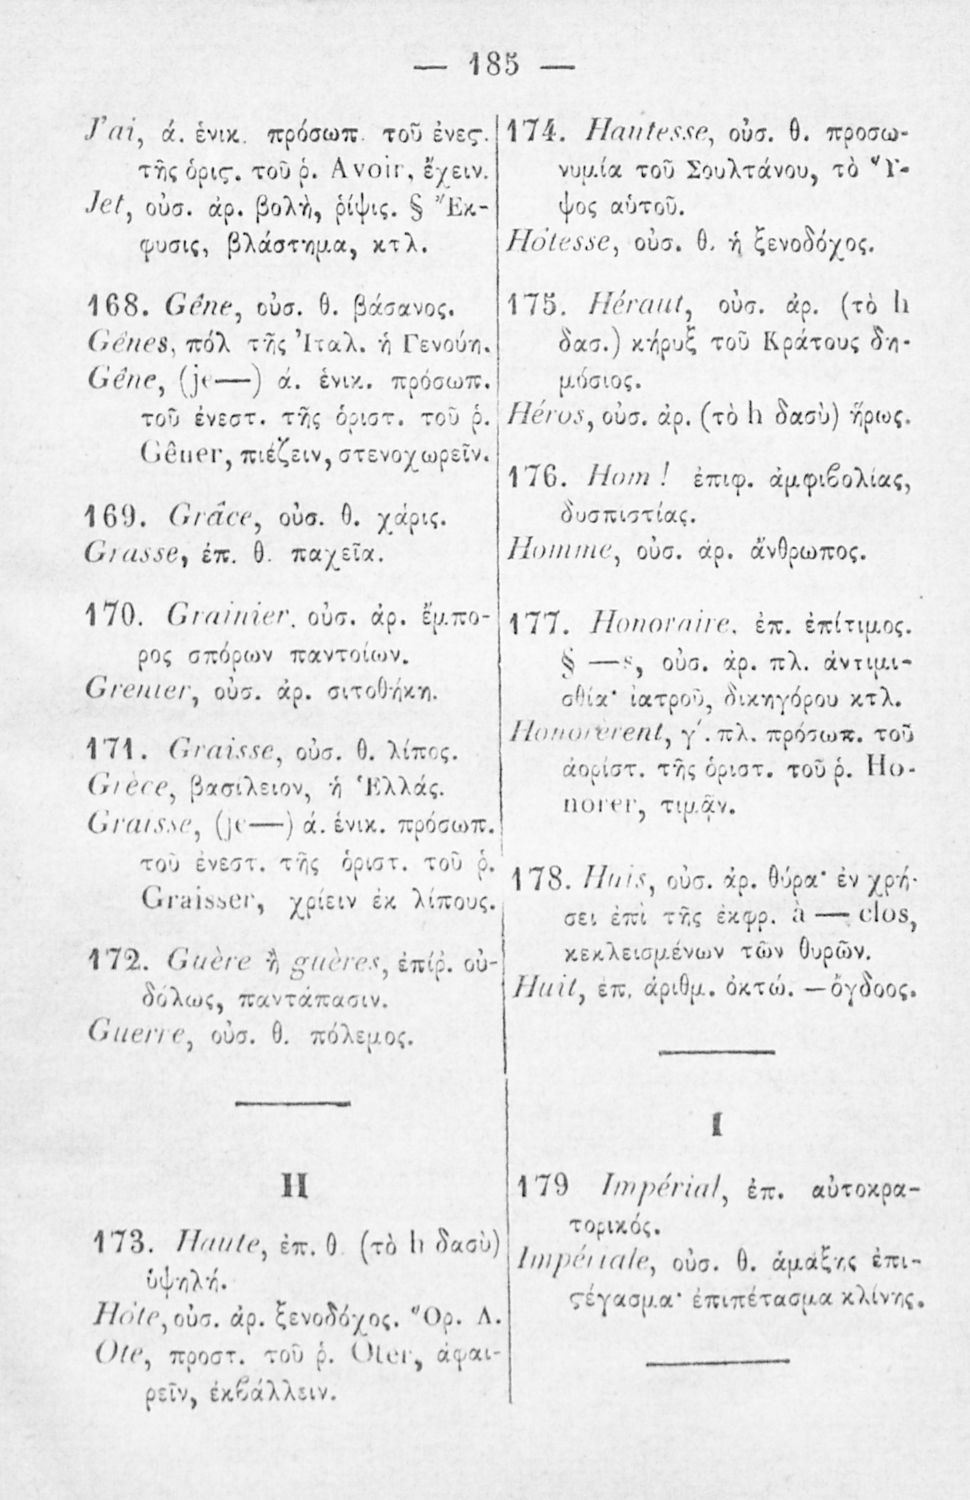 — 185 —
J'ai, ά. ἑνικ. πρόσωπ. τοῦ ἐνεϛ.
τῆς ὁριϛ. τοῦ ῥ. Avoir, ἔχειν.
Jet, οὐσ. ἀρ. βολὴ, ῥίψις. § Ἔκ-
φυσις, βλάστημα, κτλ.
168. Gêne, οὐσ. θ. βάσανος.
Gênes, πόλ τῆς Ἰταλ. ἡ Γενούη.
Gêne, (je—) ά. ἑνικ. πρόσωπ.
τοῦ ἐνεστ. τῆς ὁριστ. τοῦ ῥ.
Gêner, πιέζειν, στενοχωρεῖν.
169. Grâce, οὐσ. θ. χάρις.
Grasse, ἐπ. θ. παχεῖα.
170. Grainier, οὐσ. ἀρ. ἔμπο-
ρος σπόρων παντοίων.
Grenier, οὐσ. ἀρ. σιτοθήκη.
171. Graisse, οὐσ. θ. λίπος.
Grèce, βασίλειον, ἡ Ἑλλάς.
Graisse, (je—) ά. ἑνικ. πρόσωπ.
τοῦ ἐνεστ. τῆς ὁριστ. τοῦ ῥ.
Graisser, χρίειν ἐκ λίπους.
172. Guère ἢ guères, ἐπίρ. οὐ-
δόλως, παντάπασιν.
Guerre, οὐσ. θ. πόλεμος.
H
173. Haute, ἐπ. θ (τὸ h δασὺ)
ὑψηλή.
Hôte, οὐσ. ἀρ. ξενοδόχος. Ὅρ. Λ.
Ote, προστ. τοῦ ῥ. Oter, ἀφαι-
ρεῖν, ἐκβάλλειν.
174. Hautesse, οὐσ. θ. προσω-
νυμία τοῦ Σουλτάνου, τὸ Ὕ-
ψος αὐτοῦ.
Hôtesse, οὐσ. θ. ἡ ξενοδόχος.
175. Héraut, οὐσ. ἀρ. (τὸ h
δασ.) κήρυξ τοῦ Κράτους δη-
μόσιος.
Héros, οὐσ. ἀρ. (τὸ h δασὺ) ἥρως.
176. Hom ! ἐπιφ. ἀμφιβολίας,
δυσπιστίας.
Homme, οὐσ. ἀρ. ἄνθρωπος.
177. Honoraire, ἐπ. ἐπίτιμος.
§ —s, οὐσ. ἀρ. πλ. ἀντιμι-
σθία· ἰατροῦ, δικηγόρου κτλ.
Honorèrent, γ΄. πλ. πρόσωπ. τοῦ
ἀορίστ. τῆς ὁριστ. τοῦ ῥ. Ho-
norer, τιμᾷν.
178. Huis, οὐσ. ἀρ. θύρα· ἐν χρή-
σει ἐπὶ τῆς ἐκφρ. à — clos,
κεκλεισμένων τῶν θυρῶν.
Huit, ἐπ. ἀριθμ. ὀκτώ. — ὄγδοος.
I
179 Impérial, ἐπ. αὐτοκρα-
τορικός.
Impériale, οὐσ. θ. ἁμάξης ἐπι-
ϛέγασμα· ἐπιπέτασμα κλίνης.